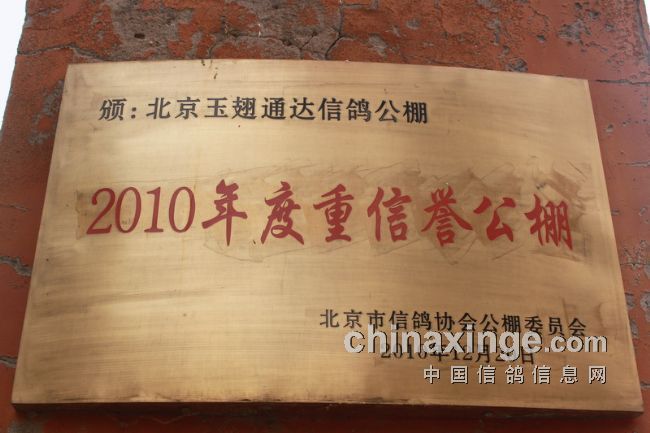 颁：北京玉翅通达信鸽公棚
2010年度重信誉公棚
北京市信鸽协会公棚委员会
2010年12月2日
chinaxinge.com
中国信鸽信息网